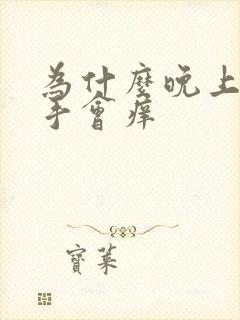 為什麼晚上
手會痒
寶萊